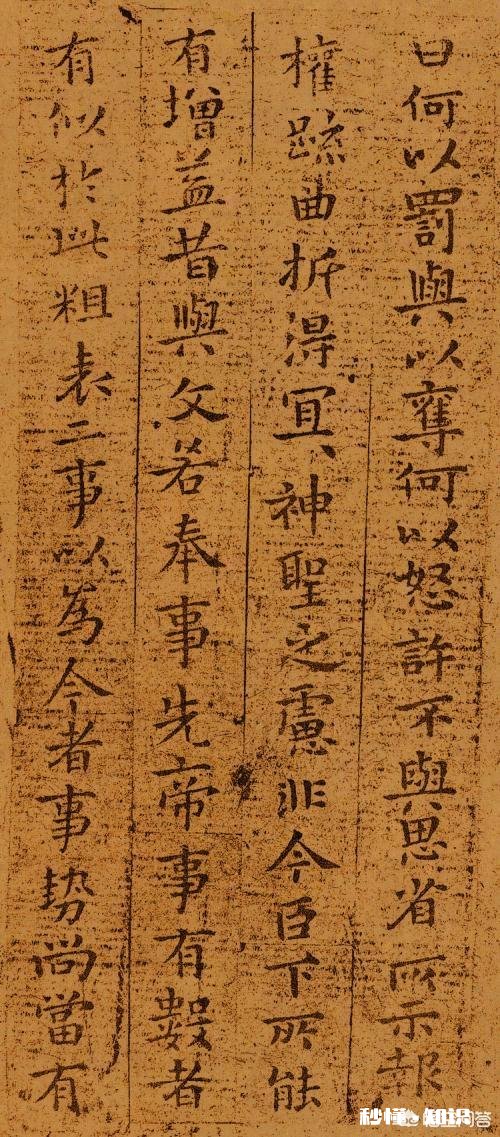 曰何以罰與以奪何以怒許不與思省所示報
權疏曲折得宜、神聖之慮非今臣下所能
有增益昔與文若奉事先帝事有數者
有似於此粗表二事以為今者事勢尚當有
秒懂·知识
问答